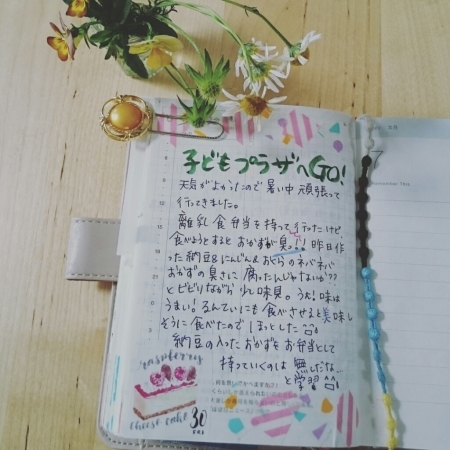 子どもプラザへGO!
天気がよかったので暑い中頑張って
行ってきました。
離乳食弁当を持って行ったけど
食べようとするとおかずが臭っ!!昨日作
った納豆&にんじん&おくらのネバネバ
おかずの臭さに腐ったんじゃないか??
とビビりながら
味見。うん!味は
うまい!るんていにも食べさせると美味し
そうに食べたのでほっとした
納豆の入ったおかずをお弁当として
持っていくのは無しだな、
と学習
raspberry
cheese cake
30
FRI